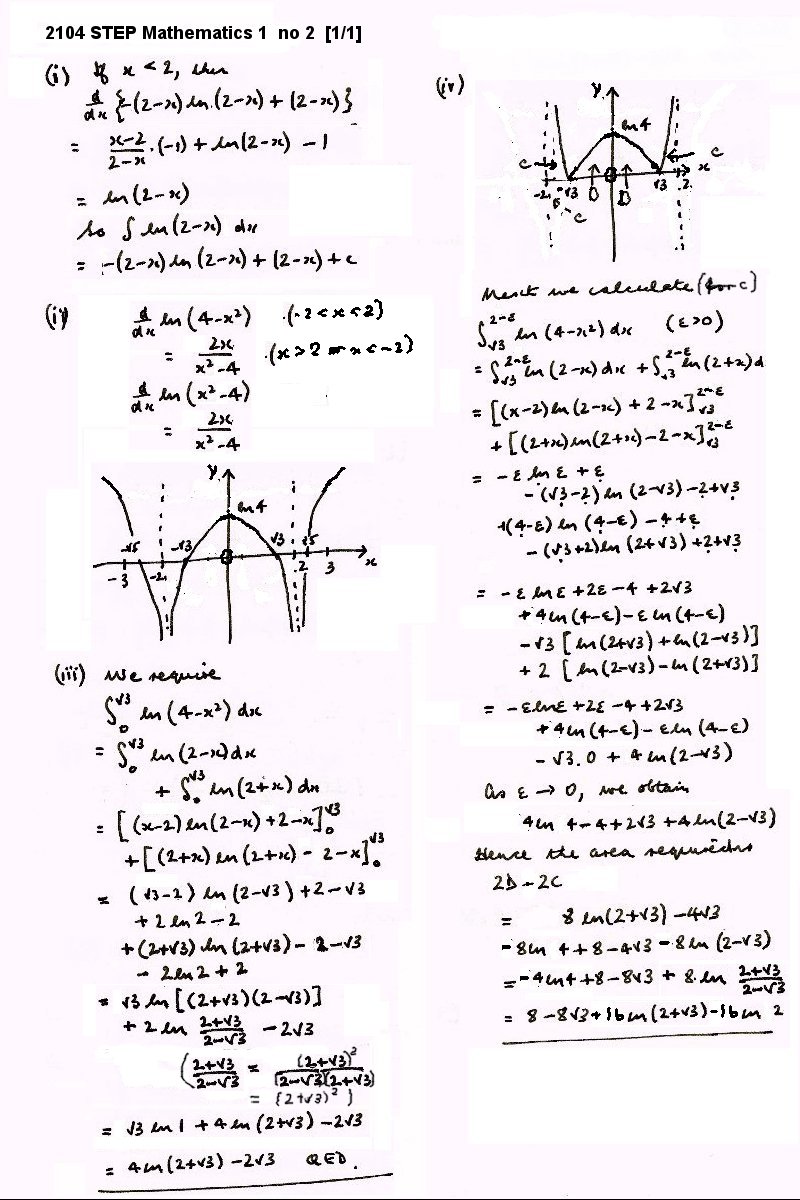 2104 STEP Mathematics 1 no 2 [1/1]
(i) If x < 2, then
d/dx {-(2-x) ln (2-x) + (2-x)}
= x-2/2-x .(-1) + ln(2-x) - 1
= ln(2-x)
So ∫ ln(2-x) dx
= -(2-x) ln (2-x) + (2-x) + c
d/dx ln(4-x²) (-2<x<2)
= 2x/x²-4 (x>2 or x<-2)
d/dx ln (x²-4)
= 2x/x²-4
y
ln 4
-√5 -√3 0 √3 √5
-3 -2 2 3 x
(iii) We require
∫₀^√3 ln (4-x²) dx
= ∫₀^√3 ln (2-x) dx
+ ∫₀^√3 ln (2+x) dx
= [(x-2) ln (2-x) + 2-x]₀^√3
+ [(2+x) ln (2+x) - 2-x]₀^√3
= (√3-2) ln (2-√3) + 2-√3
+ 2 ln 2 - 2
+ (2+√3) ln (2+√3) - 2-√3
- 2 ln 2 + 2
= √3 ln [(2+√3)(2-√3)]
+ 2 ln 2+√3/2-√3 - 2√3
(2+√3/2-√3 = (2+√3)²/(2-√3)(2+√3)
= (2+√3)²)
= √3 ln 1 + 4 ln (2+√3) - 2√3
= 4 ln (2+√3) - 2√3 QED.
(iv)
y
ln 4
C C x
-2 -√3 0 √3 2
D D
C
Next we calculate (for C)
∫√3^2-ε ln (4-x²) dx (ε>0)
= ∫√3^2-ε ln (2-x) dx + ∫√3^2-ε ln (2+x) d
= [(x-2) ln (2-x) + 2-x]√3^2-ε
+ [(2+x) ln (2+x) - 2-x]√3^2-ε
= -ε ln ε + ε
- (√3-2) ln (2-√3) - 2+√3
+ (4-ε) ln (4-ε) - 4+ε
- (√3+2) ln (2+√3) + 2+√3
= -ε ln ε + 2ε - 4 + 2√3
+ 4 ln (4-ε) - ε ln (4-ε)
- √3 [ln (2+√3) + ln (2-√3)]
+ 2 [ln (2-√3) - ln (2+√3)]
= -ε ln ε + 2ε - 4 + 2√3
+ 4 ln (4-ε) - ε ln (4-ε)
- √3.0 + 4 ln (2-√3)
As ε → 0, we obtain
4 ln 4 - 4 + 2√3 + 4 ln (2-√3)
Hence the area required is
2D - 2C
= 8 ln (2+√3) - 4√3
- 8 ln 4 + 8 - 4√3 - 8 ln (2-√3)
= - 4 ln 4 + 8 - 8√3 + 8 ln 2+√3/2-√3
= 8 - 8√3 + 16 ln (2+√3) - 16 ln 2